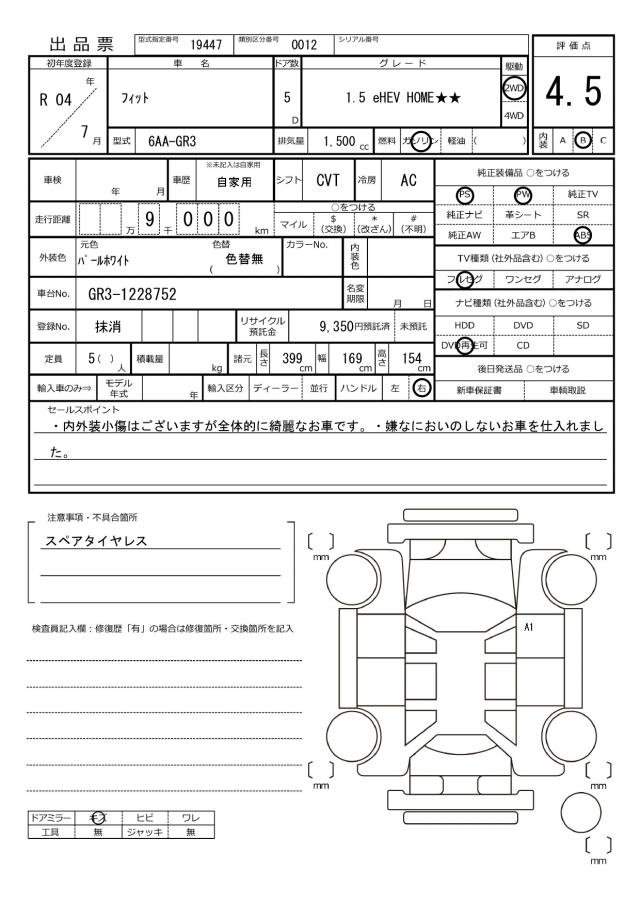 出品票 型式指定番号 19447 類別区分番号 0012 シリアル番号
評価点
4.5
内装 A B C
初年度登録 車名 ドア数 グレード 駆動
R 04 年 7 月 フィット 5 D 1.5 eHEV HOME★★ 2WD
4WD
型式 6AA-GR3 排気量 1,500 cc 燃料 ガソリン 軽油 ( )
車検 年 月 車歴 ※未記入は自家用 自家用 シフト CVT 冷房 AC
走行距離 万 9 千 0 0 0 km ○をつける
マイル $(交換) *(改ざん) #(不明)
外装色 元色 パールホワイト 色替 色替無 ( ) カラーNo. 内装色
車台No. GR3-1228752 名変期限 月 日
登録No. 抹消 リサイクル預託金 9,350円預託済 未預託
定員 5( )人 積載量 kg 諸元 長さ 399 cm 幅 169 cm 高さ 154 cm
輸入車のみ⇒ モデル年式 年 輸入区分 ディーラー 並行 ハンドル 左 右
純正装備品 ○をつける
PS PW 純正TV
純正ナビ 革シート SR
純正AW エアB ABS
TV種類(社外品含む) ○をつける
フルセグ ワンセグ アナログ
ナビ種類(社外品含む) ○をつける
HDD DVD SD
DVD再生可 CD
後日発送品 ○をつける
新車保証書 車輌取説
セールスポイント
・内外装小傷はございますが全体的に綺麗なお車です。・嫌なにおいのしないお車を仕入れまし
た。
注意事項・不具合箇所
スペアタイヤレス
検査員記入欄：修復歴「有」の場合は修復箇所・交換箇所を記入
〔 〕 mm
〔 〕 mm
A1
〔 〕 mm
〔 〕 mm
〔 〕 mm
ドアミラー キズ ヒビ ワレ
工具 無 ジャッキ 無